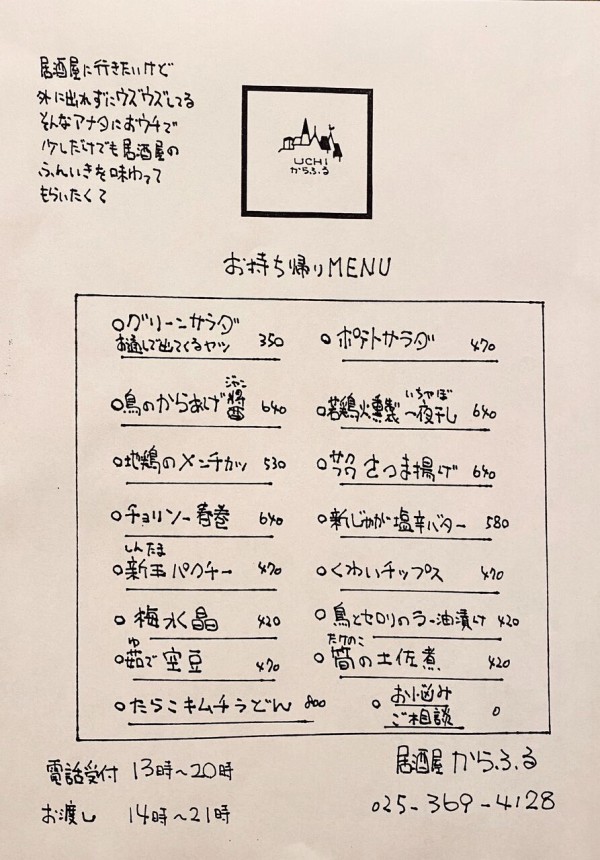 居酒屋に行きたいけど
外に出れずにウズウズしてる
そんなアナタにおウチで
少しだけでも居酒屋の
ふんいきを味わって
もらいたくて
UCHI
からふる
お持ち帰りMENU
○グリーンサラダ
お通しで出てくるヤツ 350
○ポテトサラダ 470
○鳥のからあげ ジャン醤 640
○若鶏火燻製 いちやぼ 一夜干し 640
○地鶏のメンチカツ 530
○サクサク さつま揚げ 640
○チョリソー春巻 640
○新じゃが塩辛バター 580
しんたま
○新玉パクチー 470
○くわいチップス 470
○梅水晶 420
○鳥とセロリのラー油漬け 420
ゆ
○茹で空豆 470
たけのこ
○筍の土佐煮 420
○たらこキムチうどん 800
○お悩み
ご相談 0
電話受付 13時〜20時
お渡し 14時〜21時
居酒屋 からふる
025-369-4128